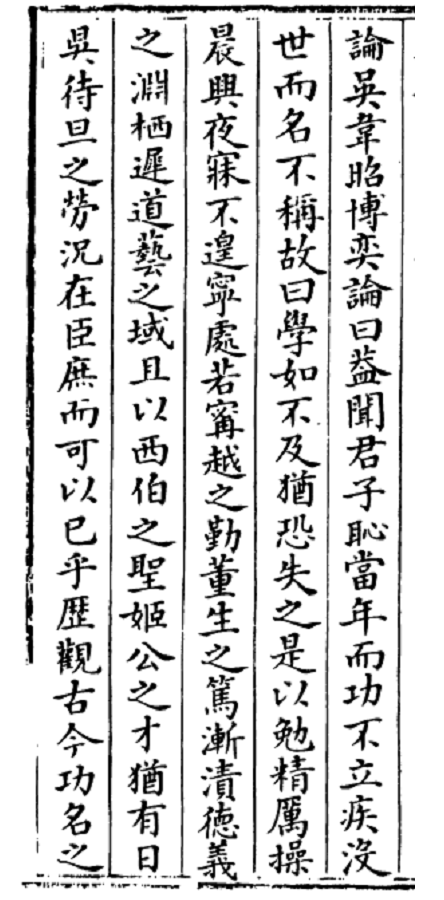 論吳韋昭博奕論曰葢聞君子恥當年而功不立疾沒
世而名不稱故曰學如不及猶恐失之是以勉精厲操
晨興夜寐不遑寧處若寗越之勤董生之篤漸漬德義
之淵栖遲道藝之域且以西伯之聖姬公之才猶有日
昃待旦之勞況在臣庶而可以已乎歴觀古今功名之